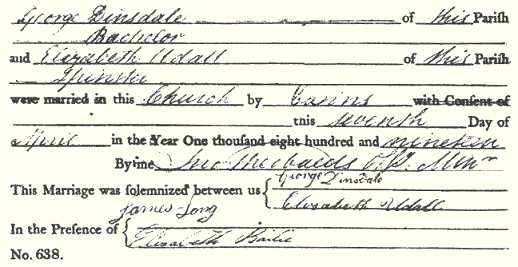 George Dinsdale of this Parish
Bachelor
and Elizabeth Udall of this Parish
Spinster
were married in this Church by Banns with Consent of
this seventh Day of
April in the Year One thousand eight hundred and nineteen
By me Jno Theobalds Off. Minr
This Marriage was solemnized between us { George Dinsdale
Elizabeth Udall
In the Presence of { James Long
Elizabeth Bailie
No. 638.